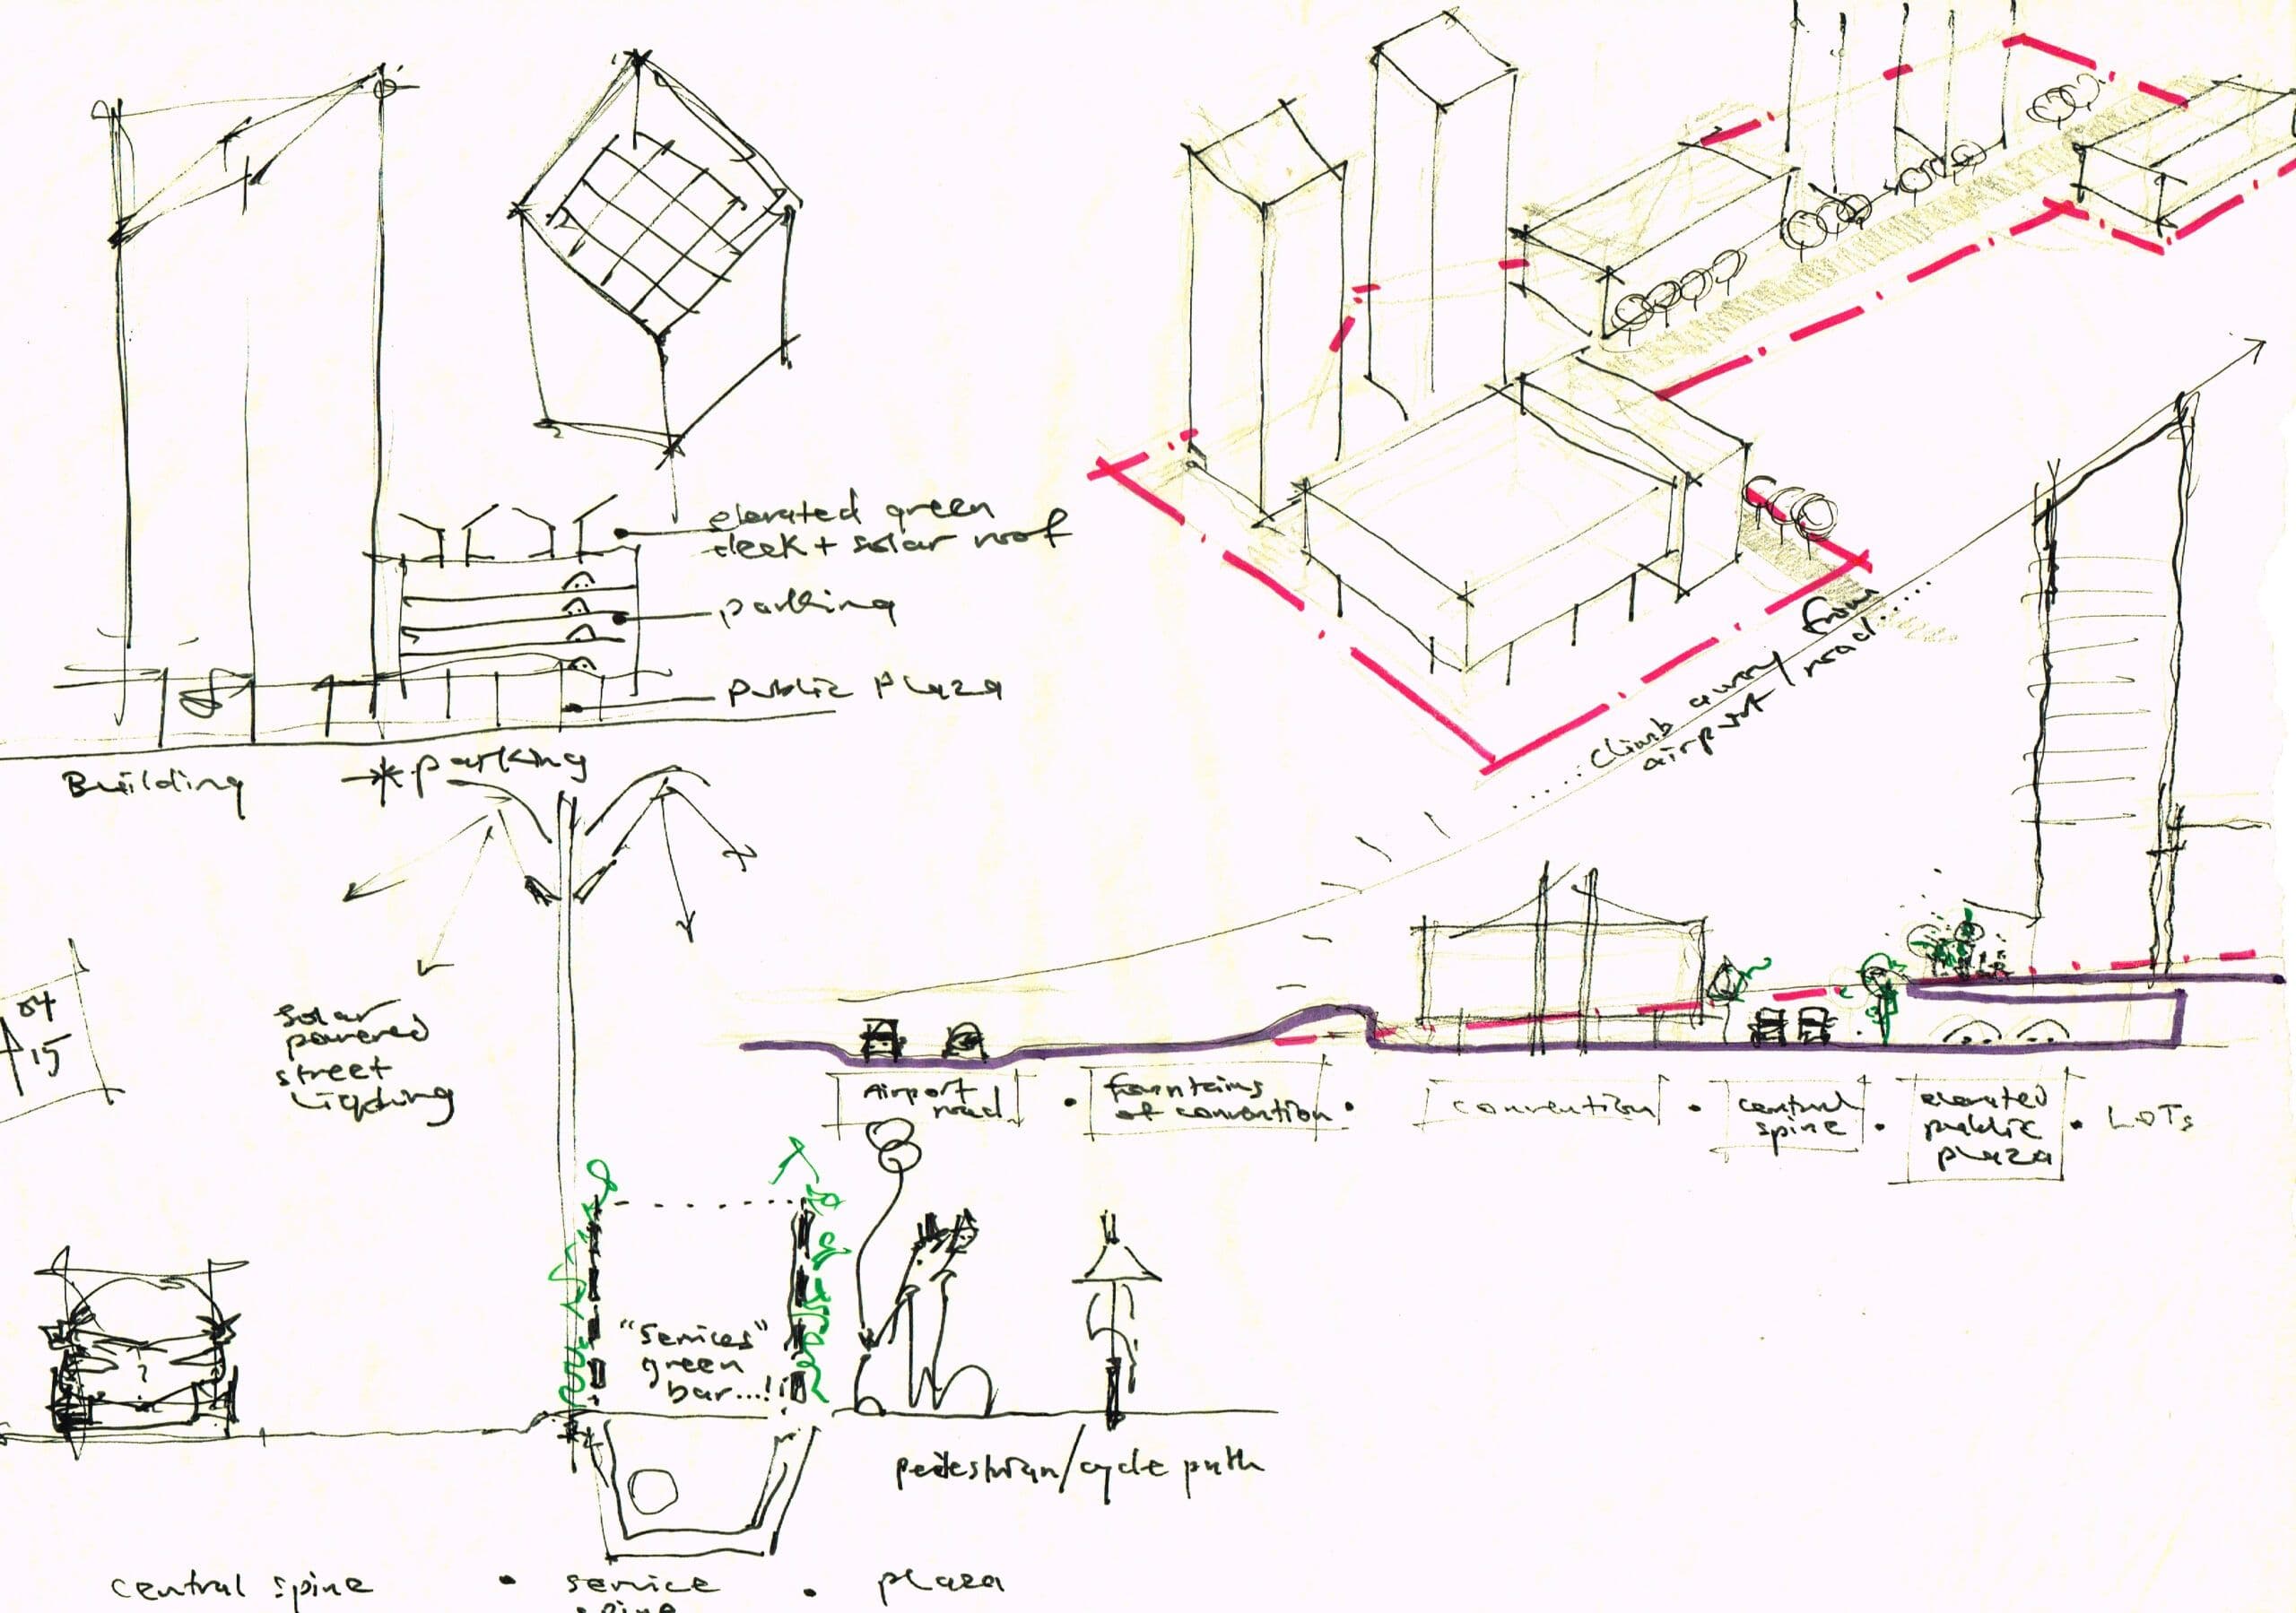 elevated green
deck + solar roof
parking
public plaza
Building
* parking
..... climb away from
airport road.....
04
15
solar
powered
street
Lighting
Airport
road
fountains
of convention
convention
central
spine
elevated
public
plaza
LOTs
"services"
green
bar...!
pedestrian/cycle path
central spine
service
spine
plaza